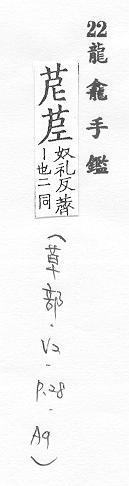 22 龍龕手鑑
苨
奴礼反薺
丨也二同
(草部-V2-p.28-A9)